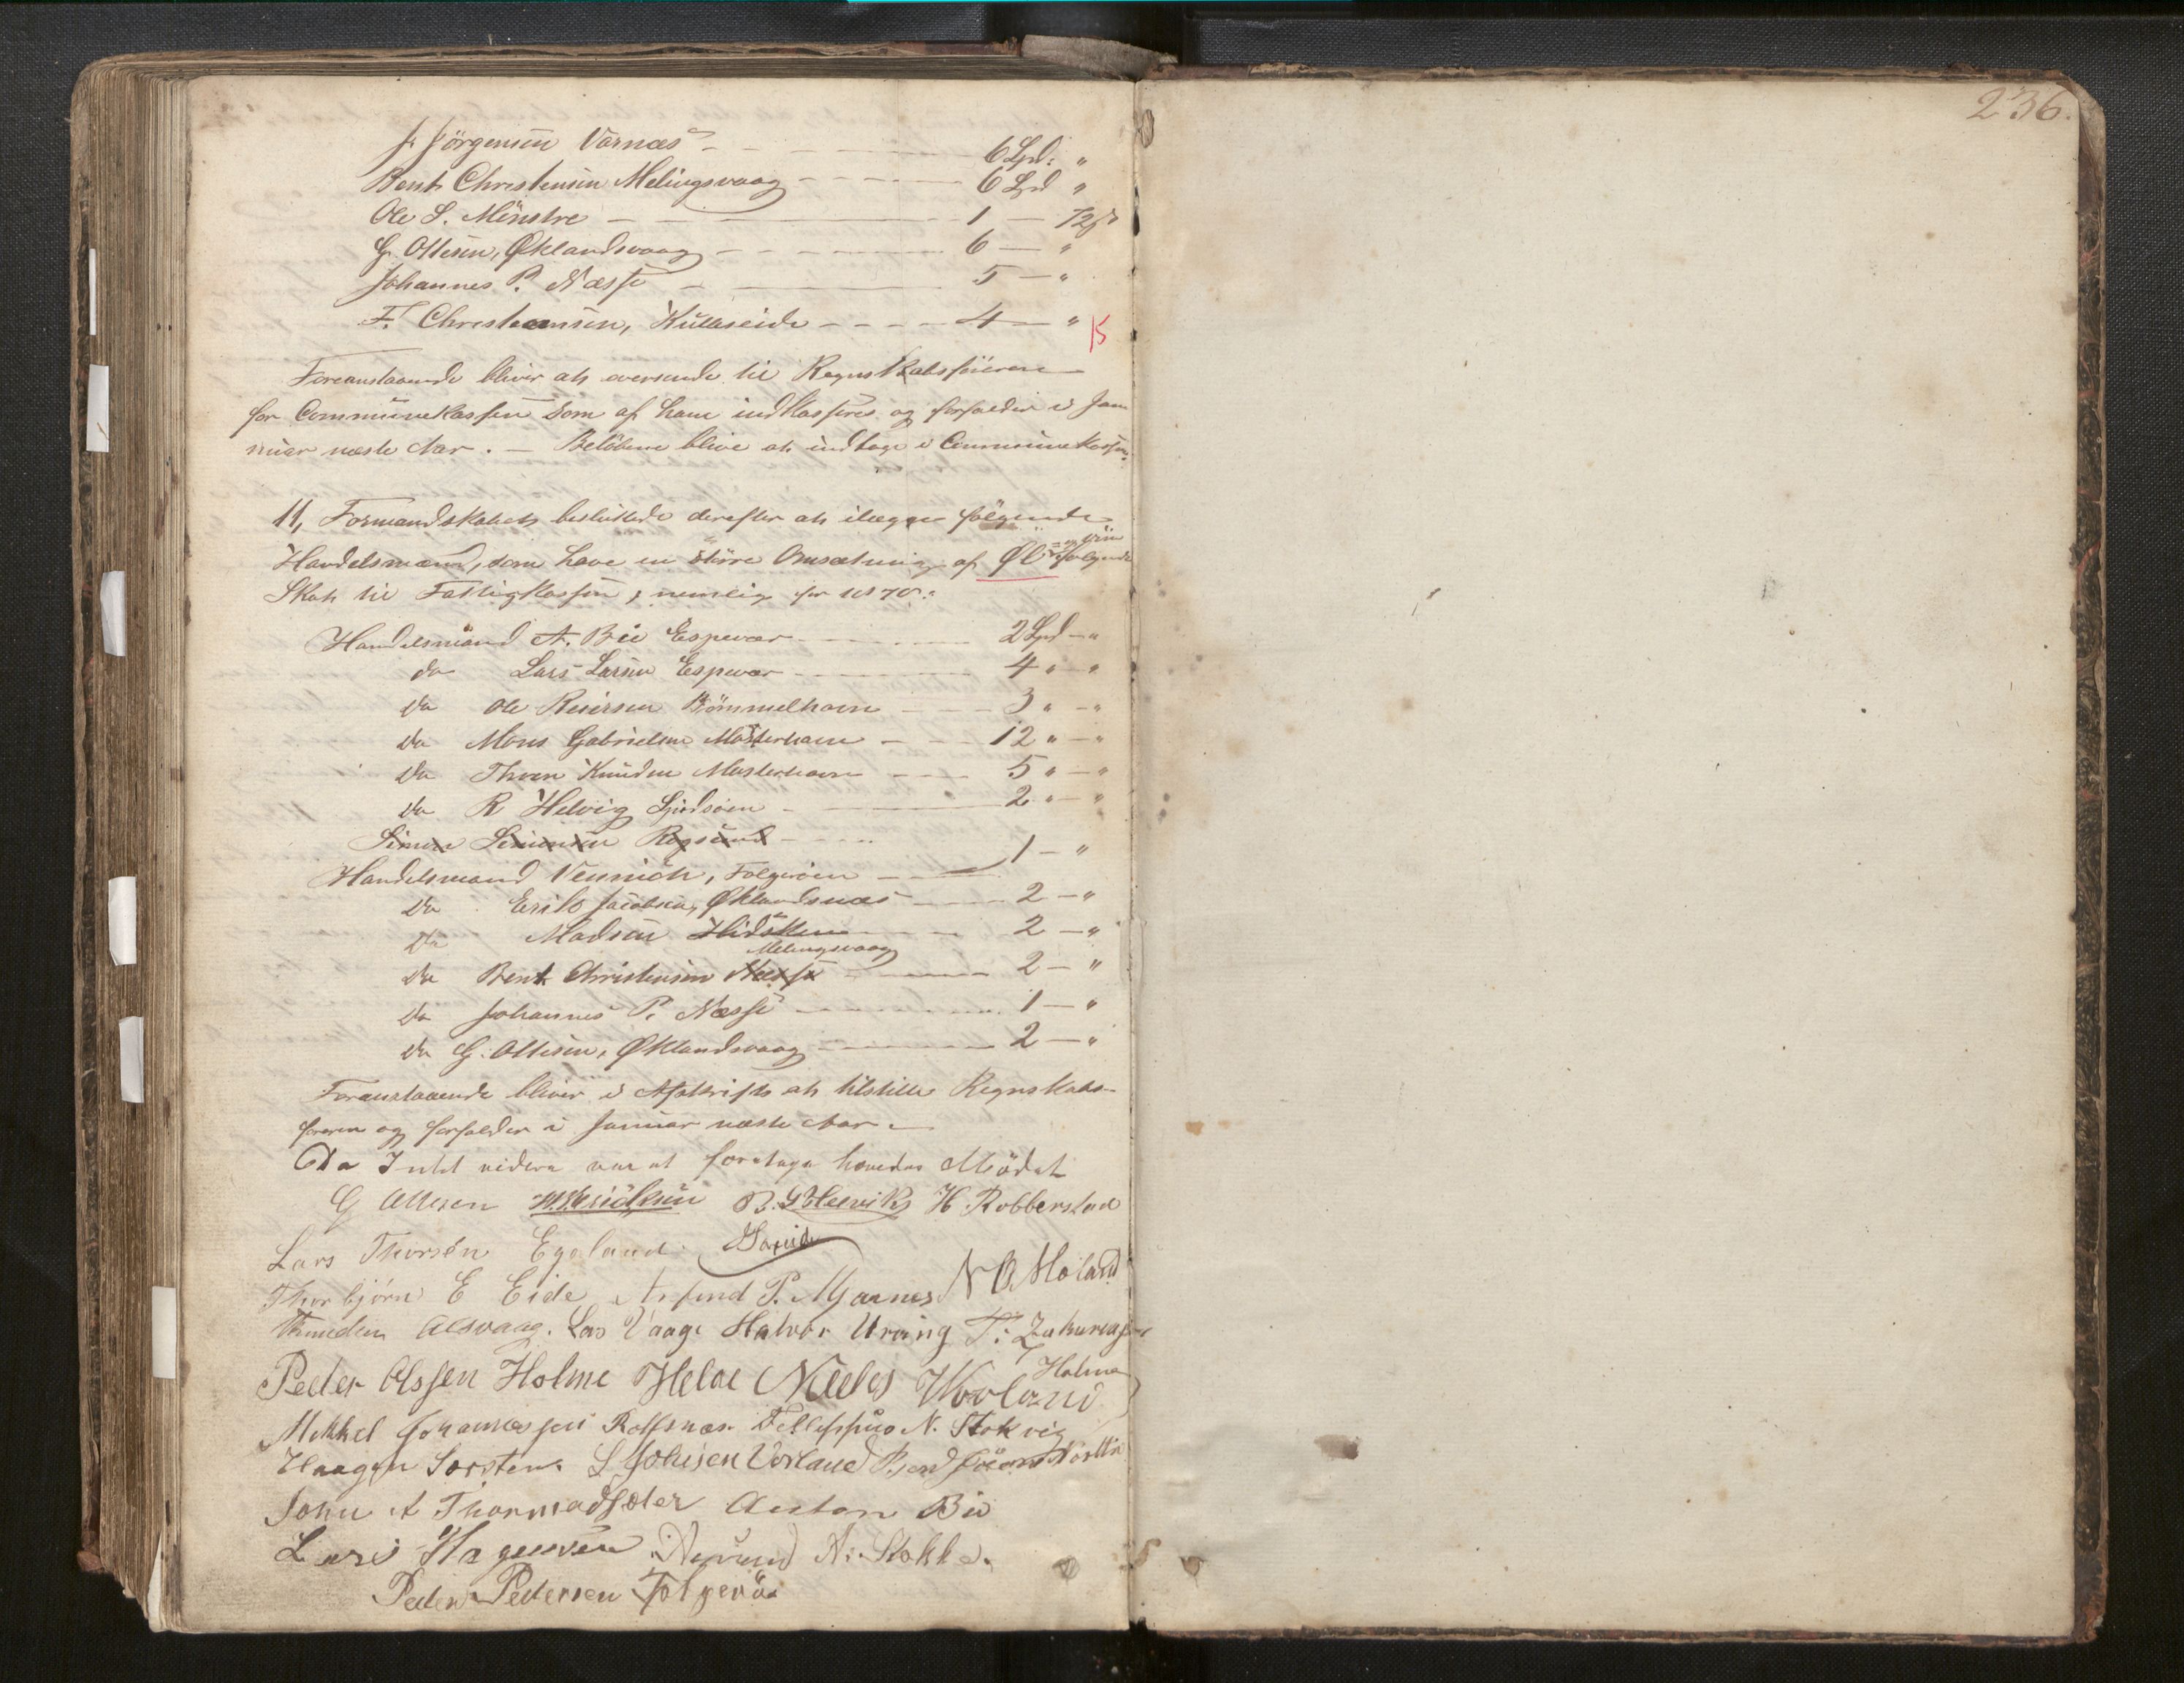 236.
J. Jörgensen Varnæs - - - 6 Spd: "
Bent Christensen Melingsvaag - - - 6 Spd "
Ole S. Mönstre - - - 1 - 72 ß
G. Ottesen, Øklandsvaag - - - 6 - "
Johannes P. Næsse - - - 5 - "
F. Christensen, Kulleseide - - - 4 - "
15
Foreanstaaende bliver at oversende til Regnskabsföreren
for Communekassen som af ham indkasseres og forfalder i Jan
nuar næste Aar. - Belöbene blive at indtage i Communekassen.
11, Formandskabet besluttede derefter at ilægge fölgende
Handelsmænd, som have en större Omsætning af Øl og Viin fölgende
Skat til Fattigkassen, nemlig for 1870:
Handelsmand A. Bie Espevær - - - 2 Spd - "
do Lars Larsen Espevær - - - 4 " - "
do Ole Reiersen Bömmelhavn - - - 3 " - "
do Mons Gabrielsen Mosterhavn - - - 12 " - "
do Thven Knudsen Mosterhavn - - - 5 " - "
do R Helvig - - - 2 " - "
Simen Simensen Røgsund - - -
Handelsmand Vennich, Folgeröen - - - 1 - "
do Erik Jacobsen, Øklandsnæs - - - 2 - "
do Madsen Hidsken - - - 2 - "
Melingsvaag
do Bent Christensen Næsse - - - 2 - "
do Johannes P. Næsse - - - 1 - "
do G. Ottesen, Øklandsvaag - - - 2 - "
Foranstaaende bliver i Afskrift at tilstille Regnskabs-
föreren og forfalder i Januar næste Aar. -
Da Intet videre var at foretage hævedes Mödet
G Ottesen B. G Helvik H. Robberstad
Lars Thorsen Egeland
Thorbjörn E Eide P. Mjaanes N O Moland
Knudsen Alsvaag. Las Vaage Halvor Urang T. Zakariasen
Holme
Peder Olssen Holme Helge Neelss Vorland
Mikkel Johannessen Rolfsnæs. Fellippus N. Stokvig
Haagen Sorsteen. L Johnsen Vorland
John A Thormodsæter Anton Bie
Lars Hagensen Aamund N. Stokke.
Peder Pedersen Folgerö